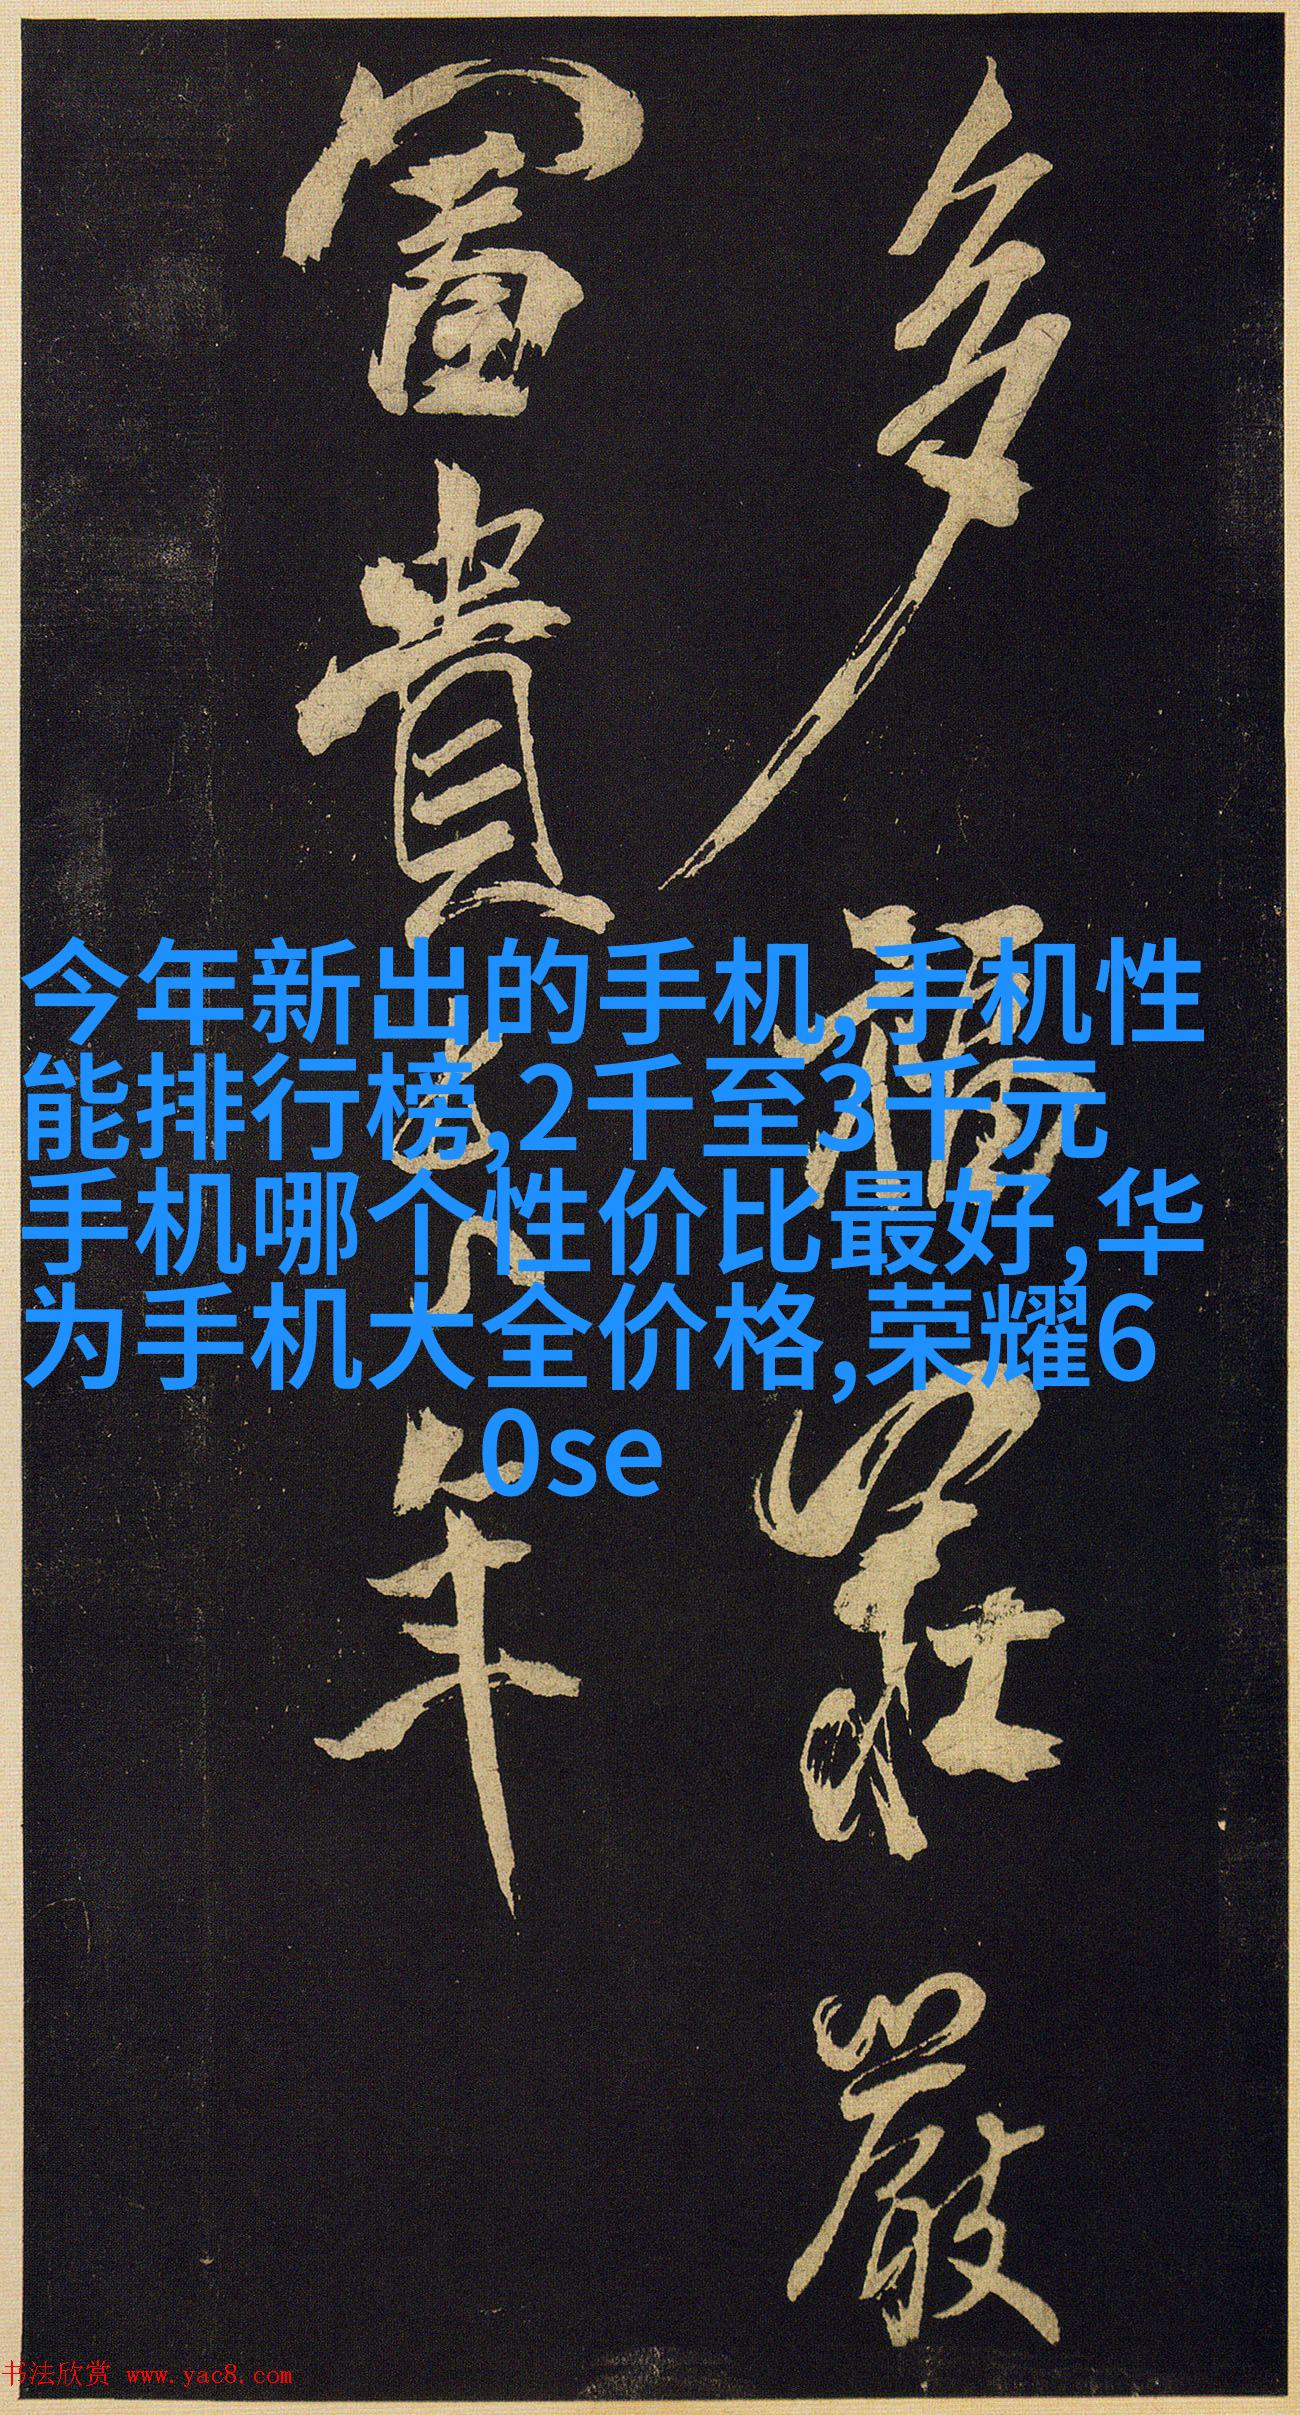 多福莊嚴
富貴年
今年新出的手机,手机性
能排行榜,2千至3千元
手机哪个性价比最好,华
为手机大全价格,荣耀6
0se
书法欣赏 www.yac8.com